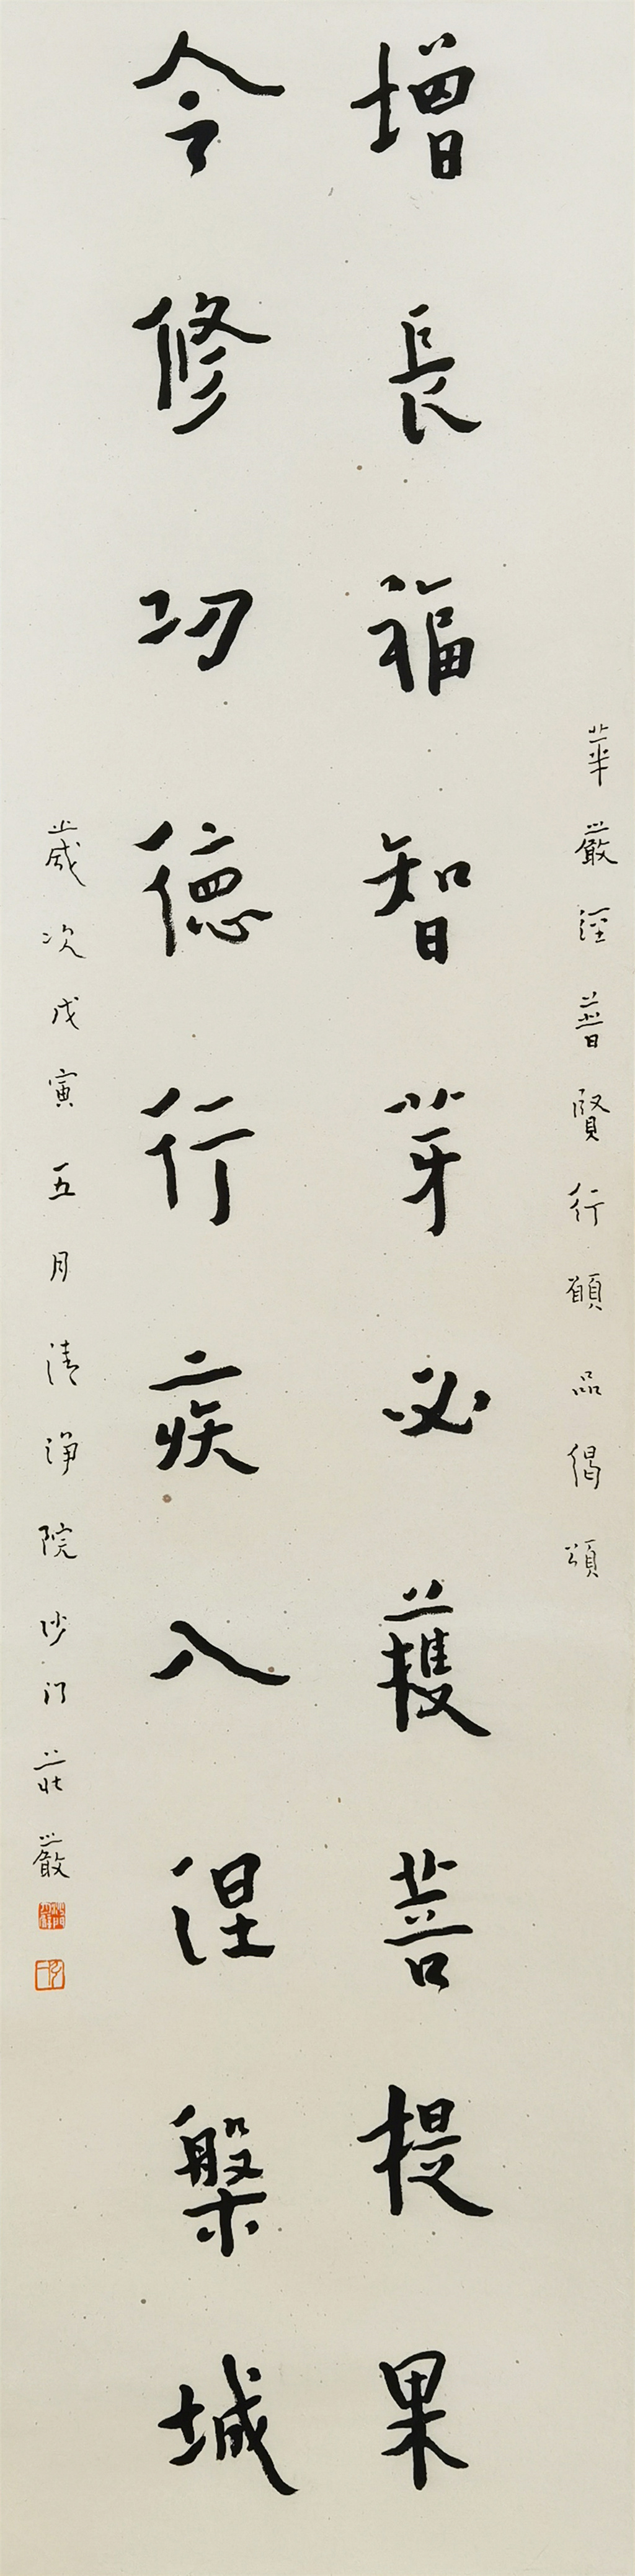 華嚴經普賢行願品偈頌
增長福智芽必獲菩提果
今修功德行疾入涅槃城
歲次戊寅五月清淨院沙门莊嚴